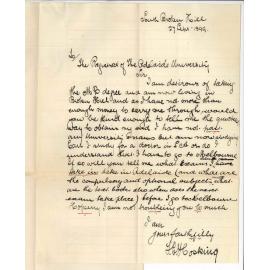 South Broken Hill
27 Sept. 1899.
To
The Registrar of The Adelaide University
Sir,
I am desirous of taking
the M.B. degree and am now living in
Broken Hill and as I have not more than
enough money to carry me through would
you be kind enough to tell me the quickest
way to obtain my end. I have not pass
any University exams but am now studying
Can I study for a doctor in Adelaide do I
understand that I have to go to Melbourne
if so will you tell me what exams I have
take in here in Adelaide (and what are
the compulsory and optional subjects, what
are the text books also when does the next
exam take place) before I go to Melbourne
Hoping I am not troubling you to much
I am
yours faithfully
Hocking